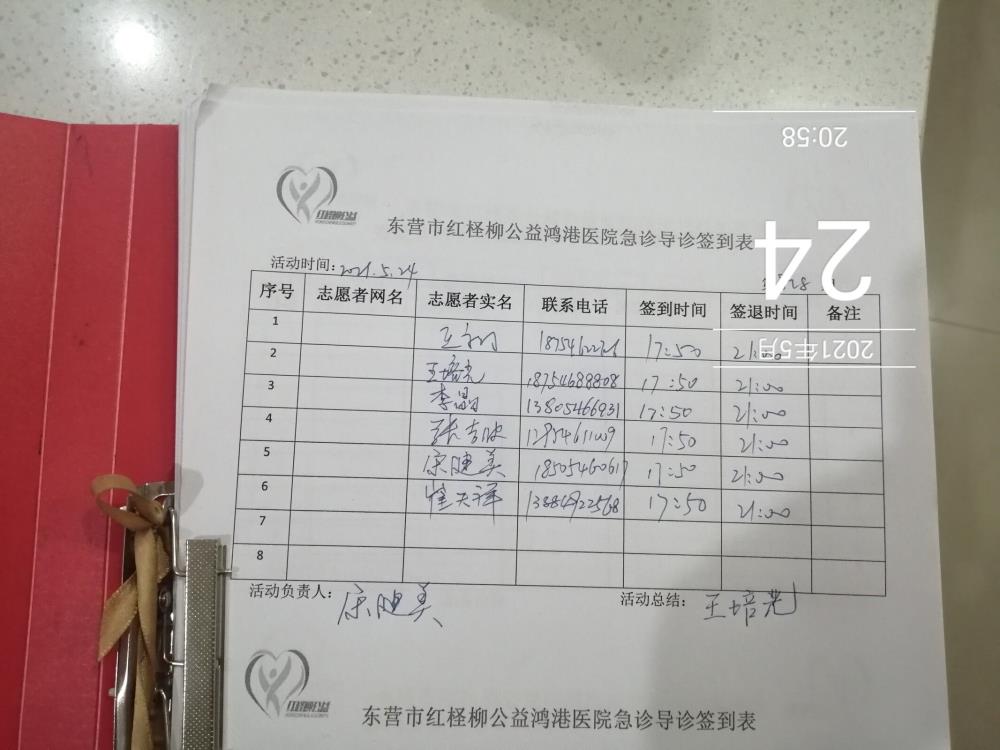 20:58
24
2021年5月
红柽柳公益
东营市红柽柳公益鸿港医院急诊导诊签到表
活动时间：2021.5.24
序号 志愿者网名 志愿者实名 联系电话 签到时间 签退时间 备注
1 17:50 21:00
2 王培光 18754688808 17:50 21:00
3 李晶 13805466931 17:50 21:00
4 17:50 21:00
5 宋健美 18505460617 17:50 21:00
6 崔天祥 17:50 21:00
7
8
活动负责人： 宋健美 活动总结： 王培光
红柽柳公益
东营市红柽柳公益鸿港医院急诊导诊签到表